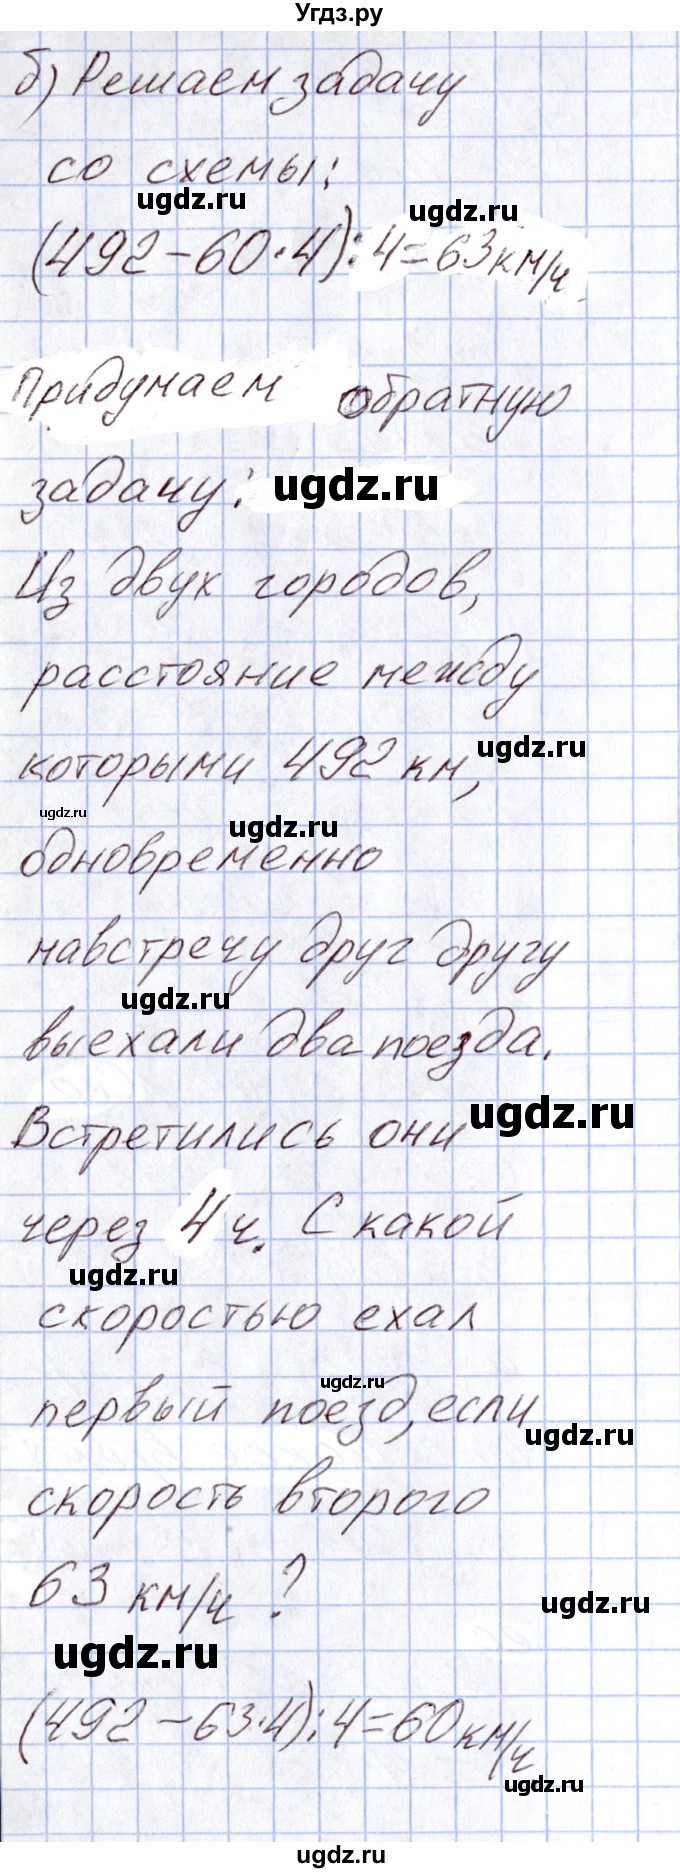 Угдз.ру
б) Решаем задачу
ugdz.ru
со схемы:
ugdz.ru
ugdz.ru
(492-60·4):4=63км/ч
Придумаем обратную
задачу: ugdz.ru
Из двух городов,
расстояние между
которыми 492 км,
ugdz.ru
ugdz.ru
ugdz.ru
одновременно
навстречу друг другу
ugdz.ru
выехали два поезда.
ugdz.ru
Встретились они
через 4 ч. С какой
ugdz.ru
скоростью ехал
ugdz.ru
первый поезд, если
ugdz.ru
скорость второго
63 км/ч ?
ugdz.ru
ugdz.ru
(492-63·4):4=60км/ч
ugdz.ru
ugdz.ru